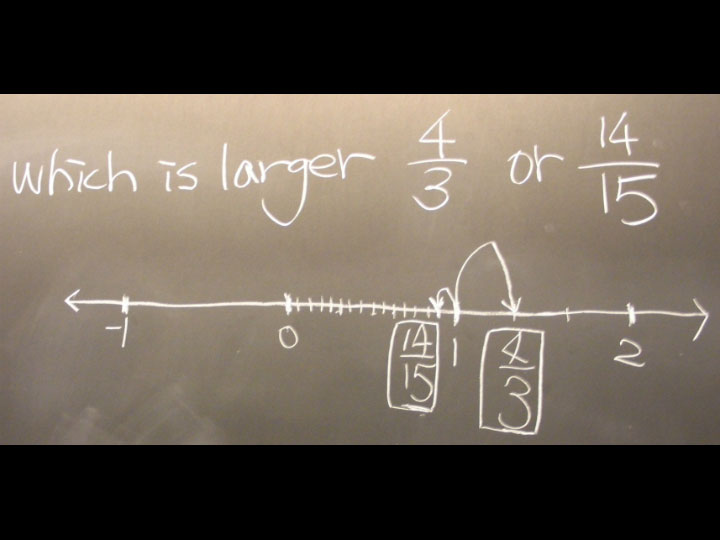 which is larger 4/3 or 14/15
-1 0 14/15 1 4/3 2